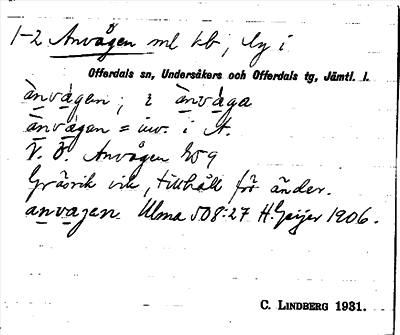 1-2 Anvågen ml kb, by i
Offerdals sn, Undersåkers och Offerdals tg, Jämtl. l.
ànvá̱gen; i ànvá̱ga
ànvá̱gan = inv. i A.
V. Ö. Anvågen 259
Gräsrik vik, tillhåll för änder.
anvagen. Ulma 508:27 H. Geijer 1906.
C. LINDBERG 1931.